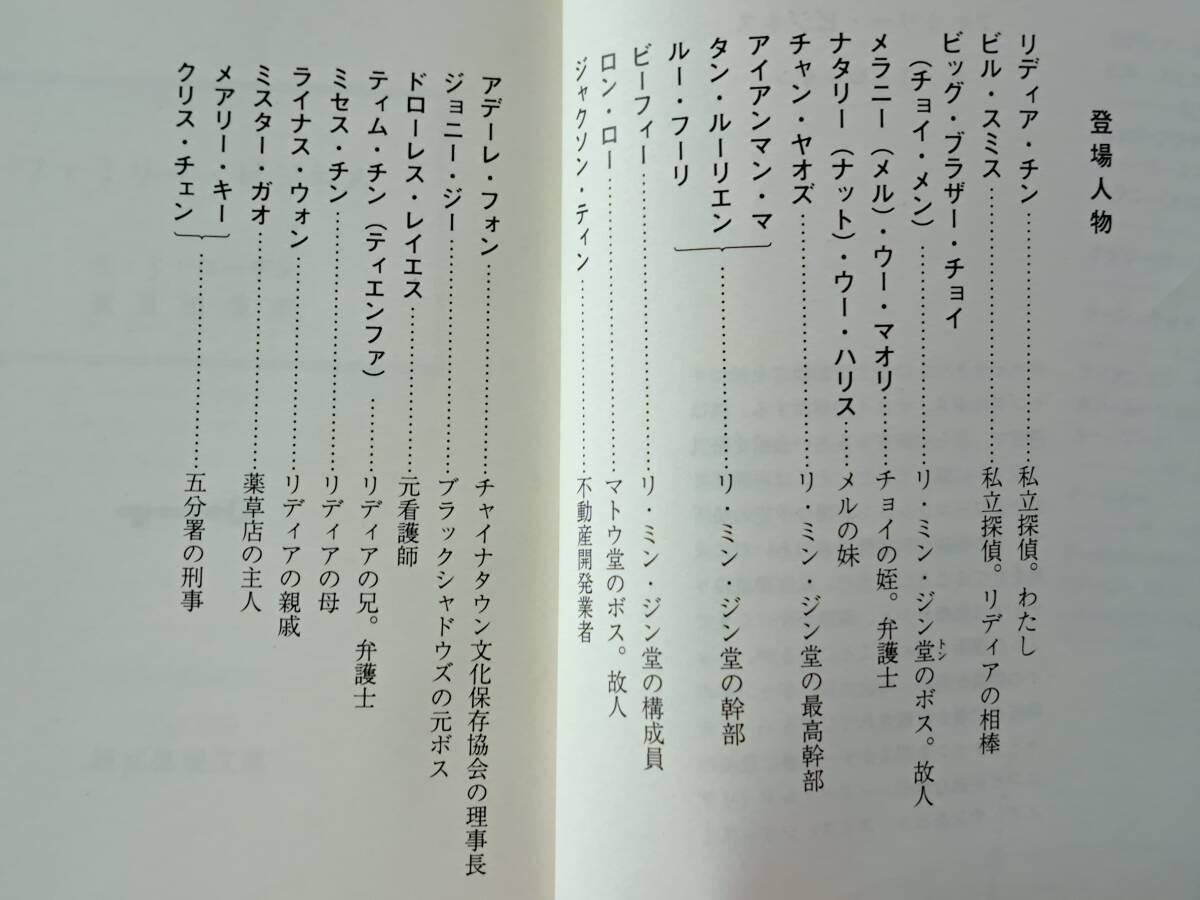 登場人物
リディア・チン……………………私立探偵。わたし
ビル・スミス……………………私立探偵。リディアの相棒
ビッグ・ブラザー・チョイ
（チョイ・メン）……………………リ・ミン・ジン堂のボス。故人
トン
メラニー（メル）・ウー・マオリ………チョイの姪。弁護士
ナタリー（ナット）・ウー・ハリス……メルの妹
チャン・ヤオズ……………………リ・ミン・ジン堂の最高幹部
アイアンマン・マ
タン・ルーリエン
ルー・フーリ
……………………リ・ミン・ジン堂の幹部
ビーフィー……………………リ・ミン・ジン堂の構成員
ロン・ロー……………………マトウ堂のボス。故人
ジャクソン・ティン……………………不動産開発業者
アデーレ・フォン……………………チャイナタウン文化保存協会の理事長
ジョニー・ジー……………………ブラックシャドウズの元ボス
ドローレス・レイエス……………………元看護師
ティム・チン（ティエンファ）………リディアの兄。弁護士
ミセス・チン……………………リディアの母
ライナス・ウォン……………………リディアの親戚
ミスター・ガオ……………………薬草店の主人
メアリー・キー
クリス・チェン
……………………五分署の刑事